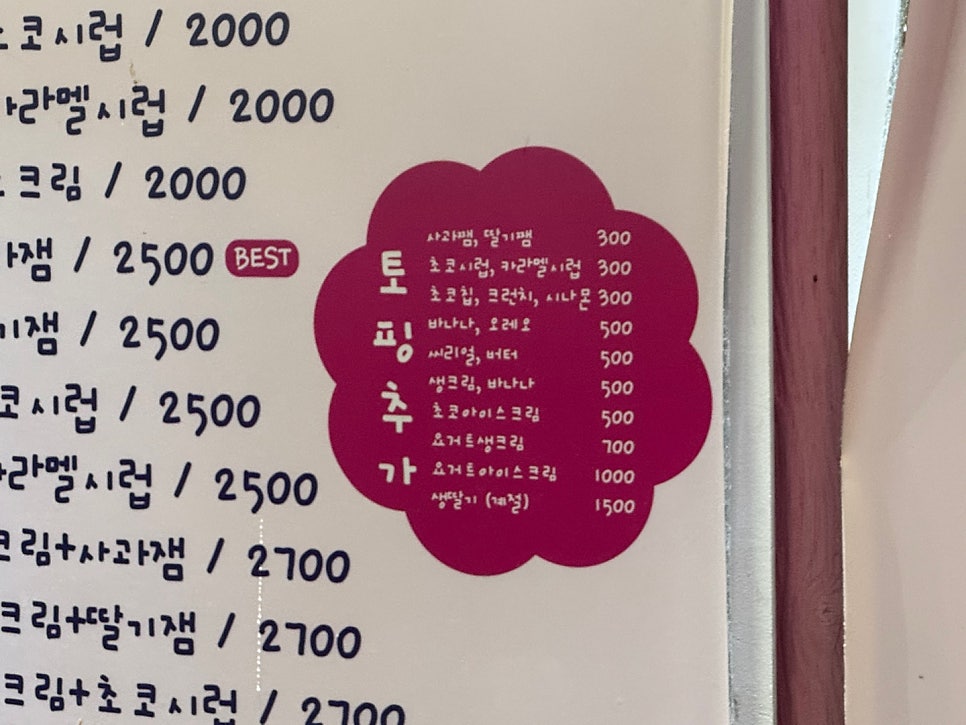 코시럽 / 2000
라멜시럽 / 2000
크림 / 2000
잼 / 2500 BEST
기잼 / 2500
코시럽 / 2500
라멜시럽 / 2500
크림+사과잼 / 2700
크림+딸기잼 / 2700
크림+초코시럽 / 2700
토핑추가
사과쨈, 딸기쨈 300
초코시럽, 카라멜시럽 300
초코칩, 크런치, 시나몬 300
바나나, 오레오 500
씨리얼, 버터 500
생크림, 바나나 500
초코아이스크림 500
요거트생크림 700
요거트아이스크림 1000
생딸기 (계절) 1500